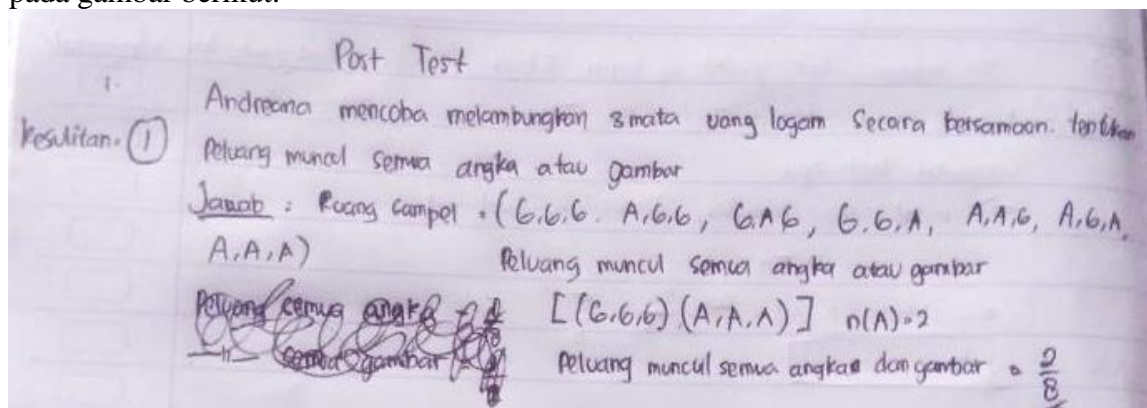 pada gambar berikut.
Post Test
1.
Andreana mencoba melambungkan 3 mata uang logam secara bersamaan. tentukan
Kesulitan. 1
Peluang muncul semua angka atau gambar
Jawab : Ruang campel = (G,G,G. A,G,G, G.A.G, G.G.A, A,A,G, A,G,A,
A,A,A)
Peluang muncul semua angka atau gambar
Peluang semua angka =
[(G,G,G) (A,A,A)] n(A)=2
—"— semua gambar =
Peluang muncul semua angka dan gambar = 2/8